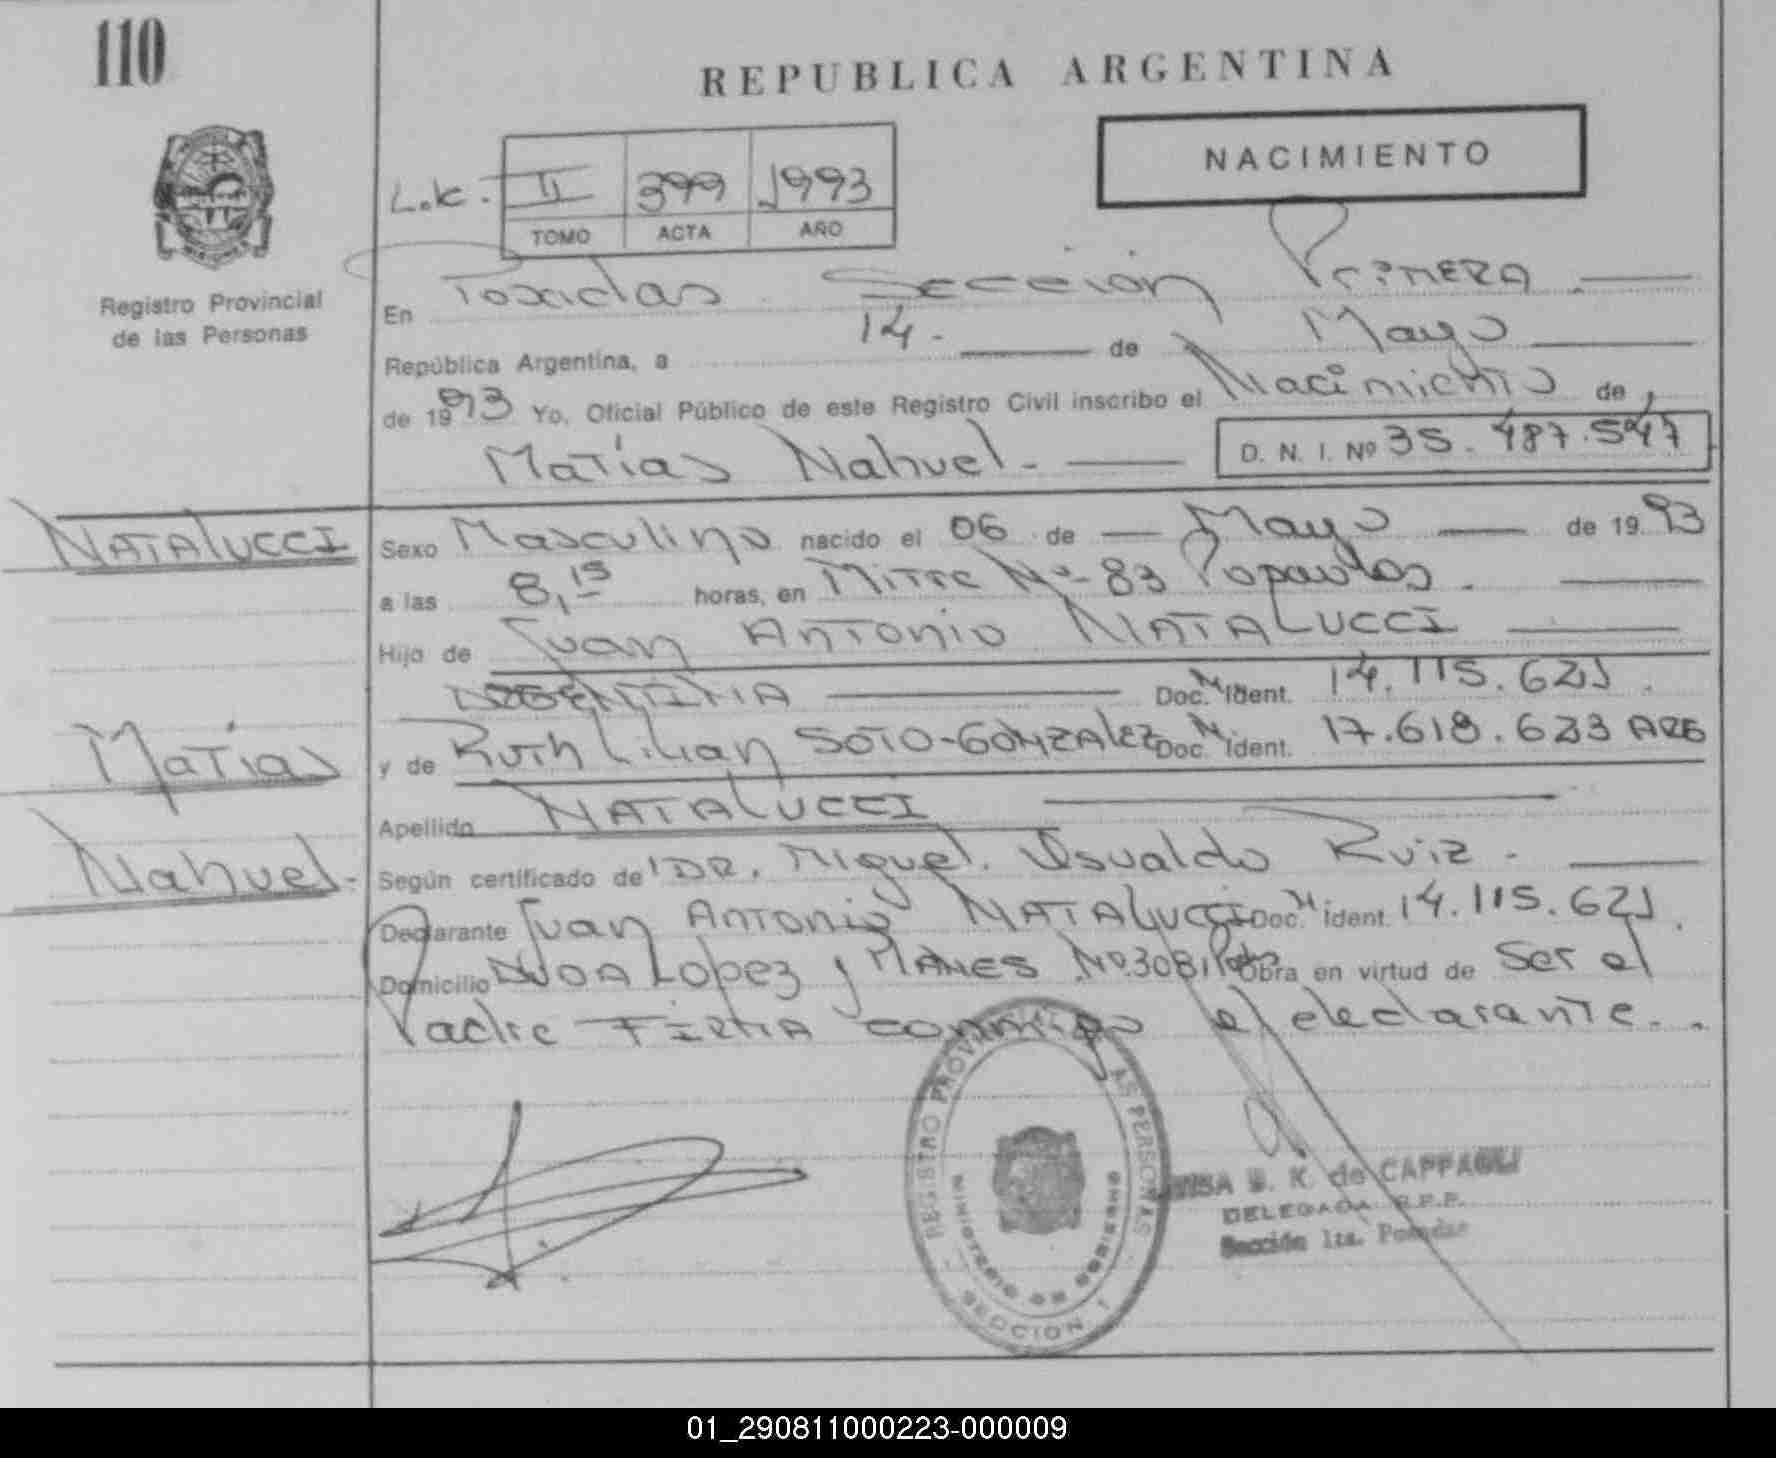 110
REPUBLICA ARGENTINA
NACIMIENTO
L.K. II 399 1993
TOMO ACTA AÑO
Registro Provincial
de las Personas
En Posadas Sección Primera.
República Argentina, a 14 - de Mayo
de 1993 Yo, Oficial Público de este Registro Civil inscribo el Nacimiento de
Matías Nahuel - D. N. I. Nº 35.487.547
NATALUCCI
Sexo Masculino nacido el 06 de Mayo de 1993
a las 8,15 horas, en Mitre Nº 83 Posadas.
Hijo de Juan Antonio NATALUCCI
ARGENTINA Doc. M Ident. 14.115.621.
Matías
y de Ruth Lilian SOTO-GONZALEZ Doc. M Ident. 17.618.633 ARG
Apellido NATALUCCI
Nahuel.-
Según certificado de DR. Miguel Osvaldo Ruiz.
Declarante Juan Antonio NATALUCCI Doc. M Ident. 14.115.621.
Domicilio Lopez y PLANES Nº 3081 Obra en virtud de Ser el
Padre FIRMA conmigo el declarante..
REGISTRO PROVINCIAL DE LAS PERSONAS
MINISTERIO DE GOBIERNO
SECCION 1
S. K. de CAPPAGLI
DELEGADA R.P.P.
Sección 1ra. Posadas
01_290811000223-000009